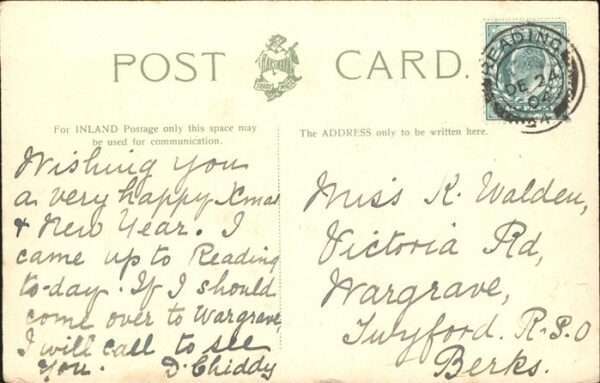 POST CARD.
READING
DE 24
04
For INLAND Postage only this space may
be used for communication.
The ADDRESS only to be written here.
Wishing you
a very happy Xmas
& New Year. I
came up to Reading
to-day. If I should
come over to Wargrave,
I will call to see
you. D. Chiddy
Miss K. Walden,
Victoria Rd,
Wargrave,
Twyford. R.S.O
Berks.